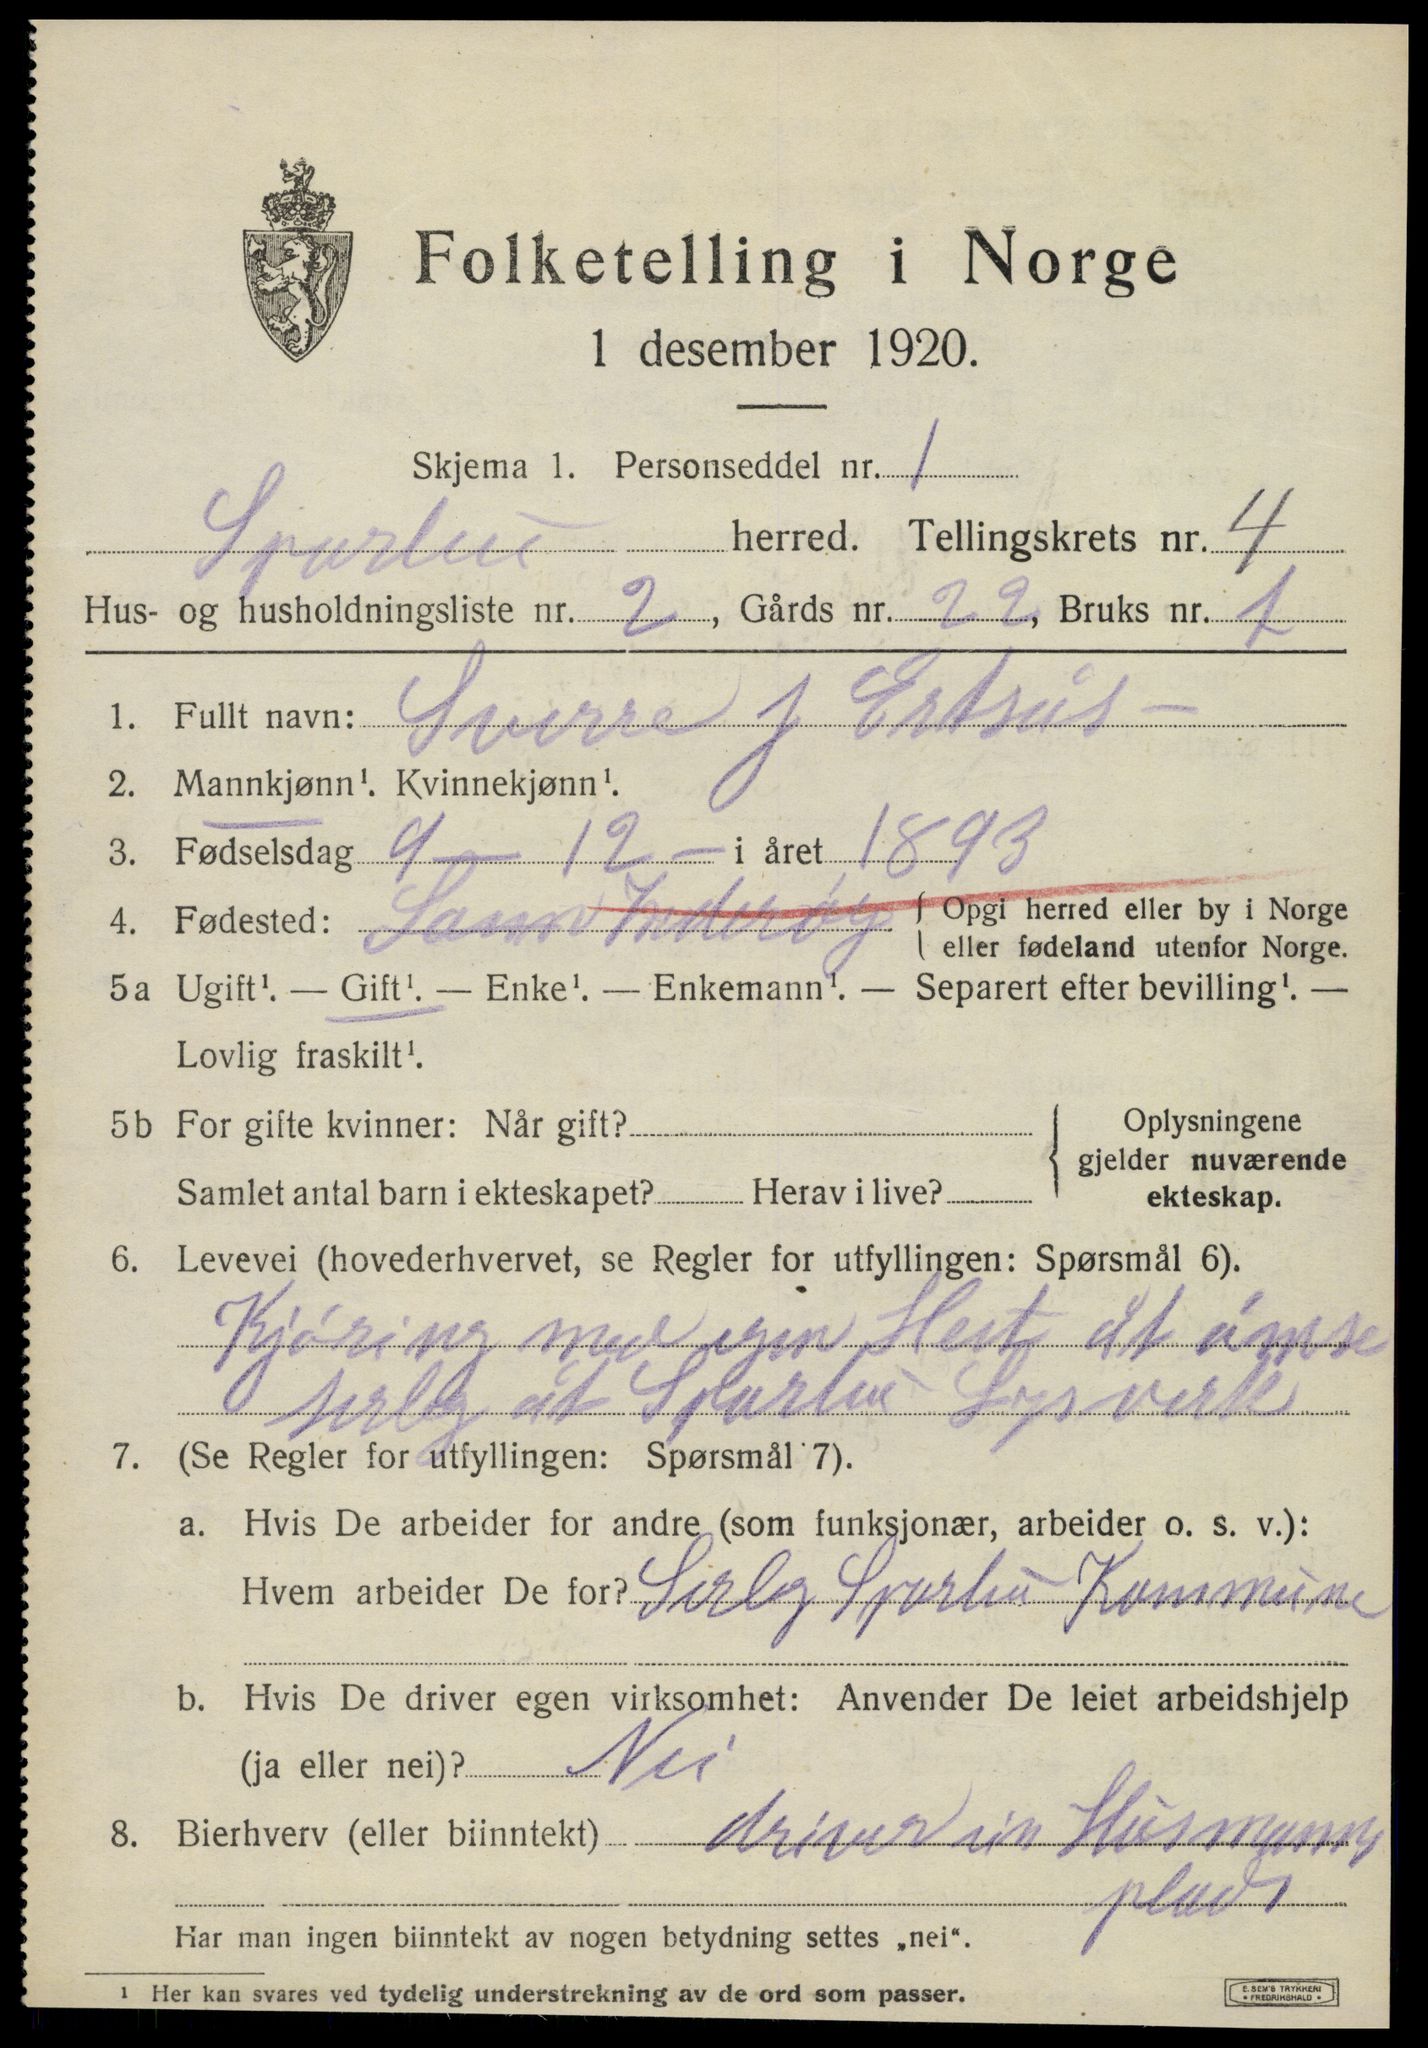 Folketelling i Norge
1 desember 1920.
Skjema 1. Personseddel nr. 1
Sparbu herred. Tellingskrets nr. 4
Hus- og husholdningsliste nr. 2, Gårds nr. 22, Bruks nr. 1
1. Fullt navn: Sverre J Ertsås -
2. Mannkjønn¹. Kvinnekjønn¹.
3. Fødselsdag 9 - 12 - i året 1893
4. Fødested: Sann Inderøy { Opgi herred eller by i Norge
eller fødeland utenfor Norge.
5a Ugift¹. — Gift¹. — Enke¹. — Enkemann¹. — Separert efter bevilling¹. —
Lovlig fraskilt¹.
5b For gifte kvinner: Når gift?
Samlet antal barn i ekteskapet? Herav i live?
Oplysningene
gjelder nuværende
ekteskap.
6. Levevei (hovederhvervet, se Regler for utfyllingen: Spørsmål 6).
Kjøring med egen Hest åt ömse
serlg åt Sparbu Lysverk
7. (Se Regler for utfyllingen: Spørsmål 7).
a. Hvis De arbeider for andre (som funksjonær, arbeider o. s. v.):
Hvem arbeider De for? Serlg Sparbu Kommune
b. Hvis De driver egen virksomhet: Anvender De leiet arbeidshjelp
(ja eller nei)? Nei
8. Bierhverv (eller biinntekt) driver ein Husmanns
plads
Har man ingen biinntekt av nogen betydning settes „nei“.
¹ Her kan svares ved tydelig understrekning av de ord som passer.
E. SEM'S TRYKKERI
• FREDRIKSHALD •